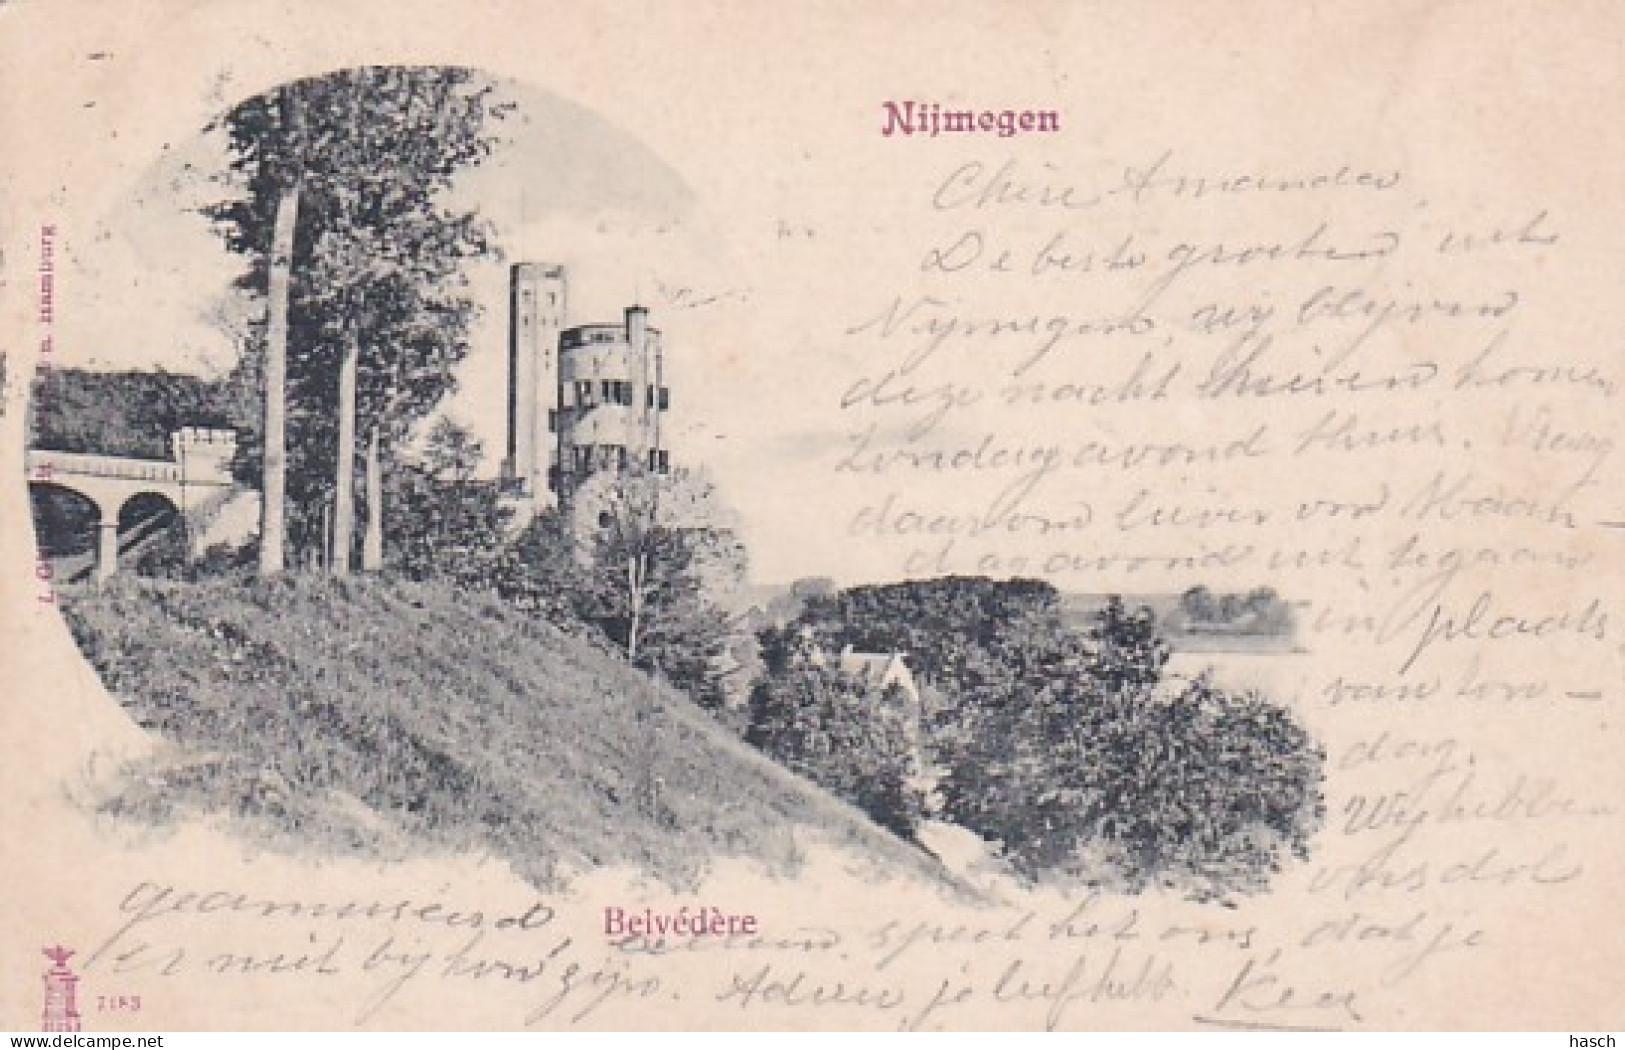 Nijmegen
Chère Amanda,
De beste groeten uit
Nijmegen, wij blijven
deze nacht hier en komen
Zondag avond thuis. Vraag
daarom liever om Maan-
dagavond uit te gaan
in plaats
van Zon-
dag.
Wij hebben
ons dol
geamuseerd
Belvédère
speet het ons, dat je
er niet bij kon zijn. Adieu, je liefhebb.
L. hamburg
7183
hasch